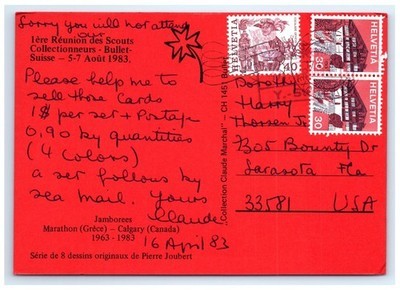 Sorry you will not attend
our
1ère Réunion des Scouts
Collectionneurs - Bullet-
Suisse - 5-7 Août 1983,
Please help me to
sell those Cards
1$ per set + Postage
0,90 by quantities
(4 Colors)
a set follows by
sea mail. Yours
Claude
Jamborees
Marathon (Grèce) – Calgary (Canada)
1963 - 1983
16 April 83
Série de 8 dessins originaux de Pierre Joubert
"Collection Claude Marchal" - CH 1451 Bullet
HELVETIA
40
HELVETIA
30
HELVETIA
30
Dorothy
Harry
Thorsen Jr
305 Bounty Dr
Sarasota Fla
33581 USA